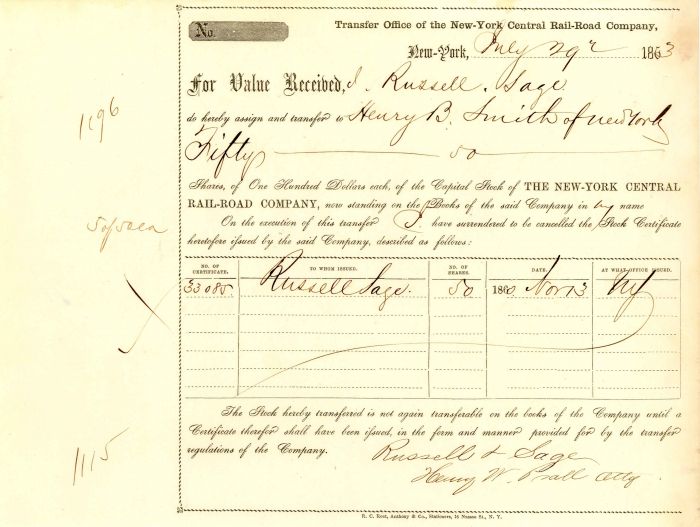 No.
Transfer Office of the New-York Central Rail-Road Company,
New-York, July 29 1863
For Value Received, I. Russell. Sage
do hereby assign and transfer to Henry B. Smith of New York
Fifty 50
Shares, of One Hundred Dollars each, of the Capital Stock of THE NEW-YORK CENTRAL
RAIL-ROAD COMPANY, now standing on the Books of the said Company in my name
On the execution of this transfer I have surrendered to be cancelled the Stock Certificate
heretofore issued by the said Company, described as follows:
NO. OF CERTIFICATE. TO WHOM ISSUED. NO. OF SHARES. DATE. AT WHAT OFFICE ISSUED.
33085. Russell Sage. 50 1860 Nov 13 NY
The Stock hereby transferred is not again transferable on the books of the Company until a
Certificate therefor shall have been issued, in the form and manner provided for by the transfer
regulations of the Company.
Russell Sage
Henry W. Pratt Atty
R. C. Root, Anthony & Co., Stationers, 16 Nassau St., N. Y.
1196
1115